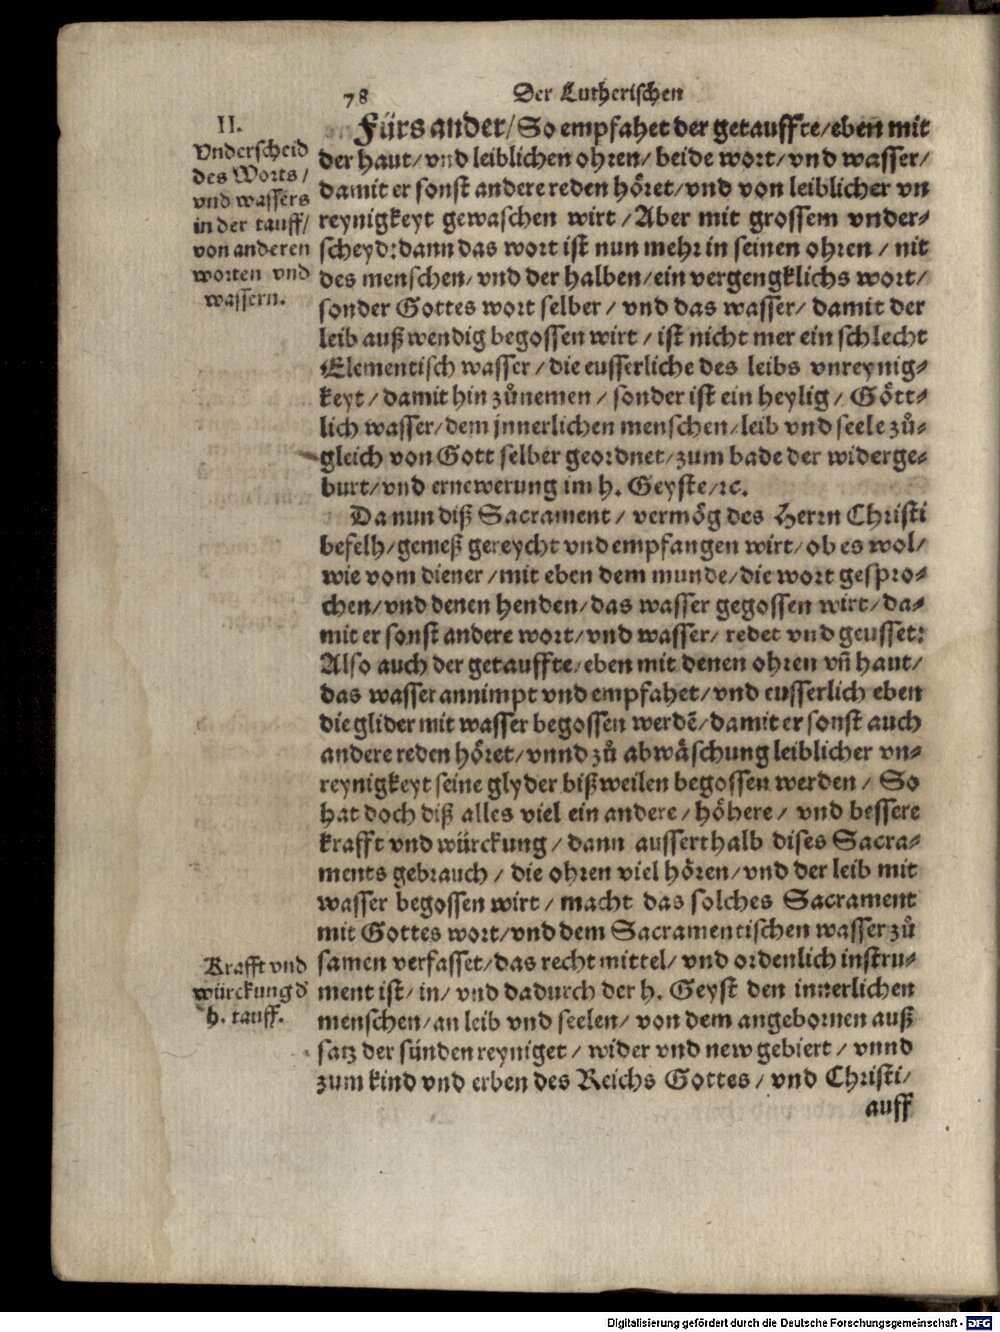 78 Der Lutherischen
II.
Vnderscheid
des Worts /
vnd wassers
in der tauff /
von anderen
worten vnd
wassern.
Fürs ander / So empfahet der getauffte / eben mit
der haut / vnd leiblichen ohren / beide wort / vnd wasser /
damit er sonst andere reden höret / vnd von leiblicher vn
reynigkeyt gewaschen wirt / Aber mit grossem vnder-
scheyd: dann das wort ist nun mehr in seinen ohren / nit
des menschen / vnd der halben / ein vergengklichs wort /
sonder Gottes wort selber / vnd das wasser / damit der
leib außwendig begossen wirt / ist nicht mer ein schlecht
Elementisch wasser / die eusserliche des leibs vnreynig-
keyt / damit hin zůnemen / sonder ist ein heylig / Gött-
lich wasser / dem jnnerlichen menschen / leib vnd seele zů-
gleich von Gott selber geordnet / zum bade der widerge-
burt / vnd ernewerung im h. Geyste / ꝛc.
Da nun diß Sacrament / vermög des Herrn Christi
befelh / gemeß gereycht vnd empfangen wirt / ob es wol /
wie vom diener / mit eben dem munde / die wort gespro-
chen / vnd denen henden / das wasser gegossen wirt / da-
mit er sonst andere wort / vnd wasser / redet vnd geusset:
Also auch der getauffte / eben mit denen ohren vñ haut /
das wasser annimpt vnd empfahet / vnd eusserlich eben
die glider mit wasser begossen werdē / damit er sonst auch
andere reden höret / vnnd zů abwäschung leiblicher vn-
reynigkeyt seine glyder bißweilen begossen werden / So
hat doch diß alles viel ein andere / höhere / vnd bessere
krafft vnd würckung / dann ausserthalb dises Sacra-
ments gebrauch / die ohren viel hören / vnd der leib mit
wasser begossen wirt / macht das solches Sacrament
mit Gottes wort / vnd dem Sacramentischen wasser zů
samen verfasset / das recht mittel / vnd ordenlich instru-
ment ist / in / vnd dadurch der h. Geyst den innerlichen
menschen / an leib vnd seelen / von dem angebornen auß
satz der sünden reyniget / wider vnd new gebiert / vnnd
zum kind vnd erben des Reichs Gottes / vnd Christi /
Krafft vnd
würckung d
h. tauff.
auff
Digitalisierung gefördert durch die Deutsche Forschungsgemeinschaft - DFG